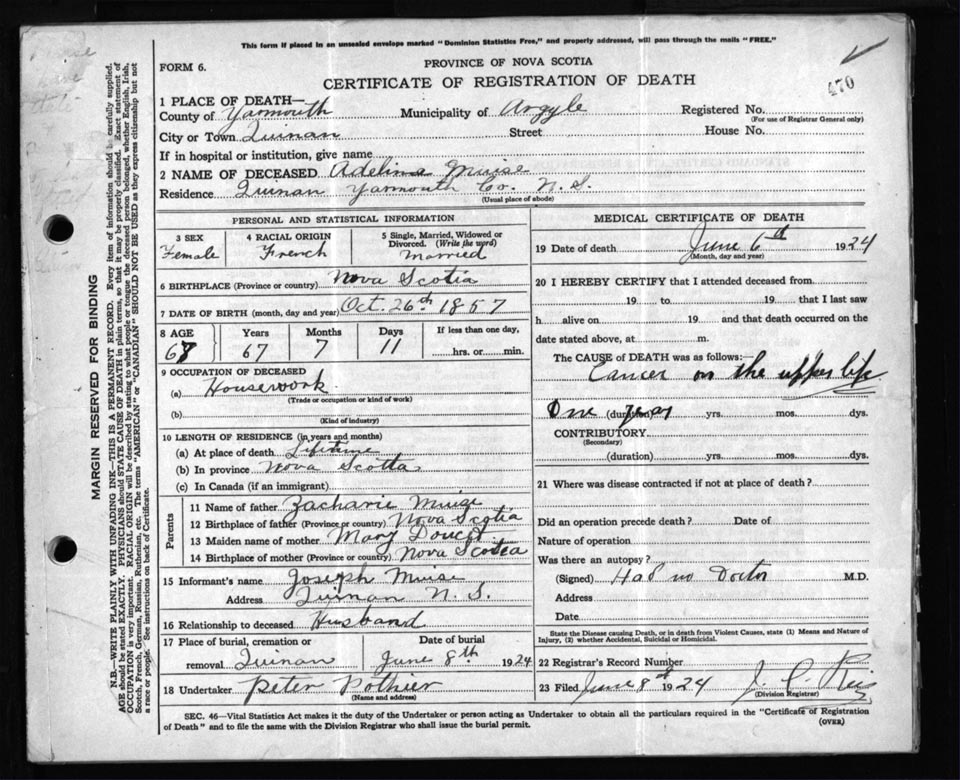 This form if placed in an unsealed envelope marked "Dominion Statistics Free," and properly addressed, will pass through the mails "FREE."
FORM 6.
PROVINCE OF NOVA SCOTIA
CERTIFICATE OF REGISTRATION OF DEATH
470
1 PLACE OF DEATH—
County of Yarmouth Municipality of Argyle Registered No.
(For use of Registrar General only)
City or Town Quinan Street House No.
If in hospital or institution, give name
2 NAME OF DECEASED Adeline Muise
Residence Quinan Yarmouth Co. N. S.
(Usual place of abode)
PERSONAL AND STATISTICAL INFORMATION
3 SEX 4 RACIAL ORIGIN 5 Single, Married, Widowed or Divorced. (Write the word)
Female French Married
6 BIRTHPLACE (Province or country) Nova Scotia
7 DATE OF BIRTH (month, day and year) Oct. 26th 1857
8 AGE Years Months Days If less than one day,
67 7 11 hrs. or min.
9 OCCUPATION OF DECEASED
(a) Housework
(Trade or occupation or kind of work)
(b)
(Kind of industry)
10 LENGTH OF RESIDENCE (in years and months)
(a) At place of death Lifetime
(b) In province Nova Scotia
(c) In Canada (if an immigrant)
Parents
11 Name of father Zacharie Muise
12 Birthplace of father (Province or country) Nova Scotia
13 Maiden name of mother Mary Doucet
14 Birthplace of mother (Province or country) Nova Scotia
15 Informant's name Joseph Muise
Address Quinan N. S.
16 Relationship to deceased Husband
17 Place of burial, cremation or Date of burial
removal Quinan June 8th 1924
18 Undertaker Peter Pothier
(Name and address)
MEDICAL CERTIFICATE OF DEATH
19 Date of death June 6th 1924
(Month, day and year)
20 I HEREBY CERTIFY that I attended deceased from
19 to 19 that I last saw
h alive on 19 and that death occurred on the
date stated above, at m.
The CAUSE of DEATH was as follows:—
Cancer on the upper lip
One year (duration) yrs. mos. dys.
CONTRIBUTORY
(Secondary)
(duration) yrs. mos. dys.
21 Where was disease contracted if not at place of death?
Did an operation precede death? Date of
Nature of operation
Was there an autopsy?
(Signed) Had no Doctor M.D.
Address
Date
State the Disease causing Death, or in death from Violent Causes, state (1) Means and Nature of
Injury, (2) whether Accidental, Suicidal or Homicidal.
22 Registrar's Record Number
23 Filed June 8th 1924
(Division Registrar)
SEC. 46—Vital Statistics Act makes it the duty of the Undertaker or person acting as Undertaker to obtain all the particulars required in the "Certificate of Registration
of Death" and to file the same with the Division Registrar who shall issue the burial permit.
(OVER)
MARGIN RESERVED FOR BINDING
N.B.—WRITE PLAINLY WITH UNFADING INK—THIS IS A PERMANENT RECORD. Every item of information should be carefully supplied.
AGE should be stated EXACTLY. PHYSICIANS should STATE CAUSE OF DEATH in plain terms, so that it may be properly classified. Exact statement of
OCCUPATION is very important. RACIAL ORIGIN will be described by stating to what people or tongue the deceased person belonged, whether English, Irish,
Scotch, French, German, Russian, Ruthenian, etc. The terms "AMERICAN" or "CANADIAN" SHOULD NOT BE USED as they express citizenship but not
a race or people. See instructions on back of Certificate.